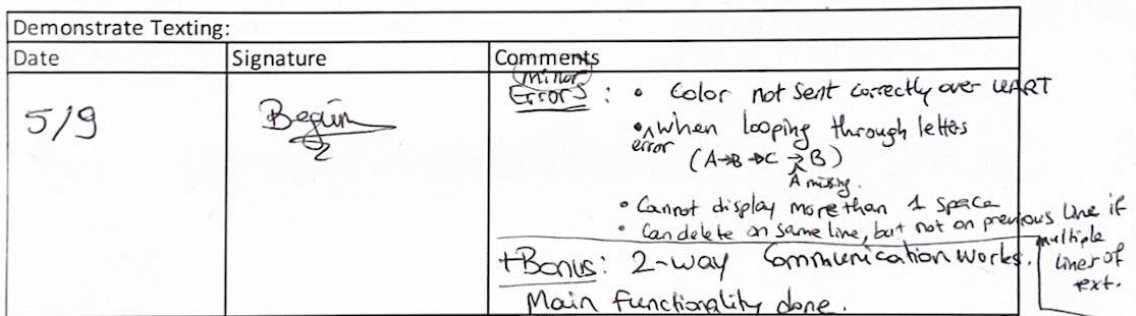 Demonstrate Texting:
Date Signature Comments
(minor)
Errors : • Color not sent correctly over UART
5/9 Begüm
• error ^ when looping through letters
(A→B→C → B)
A missing.
• Cannot display more than 1 space
• Can delete on same line, but not on previous line if multiple lines of text.
+Bonus: 2-way Communication works.
Main functionality done.